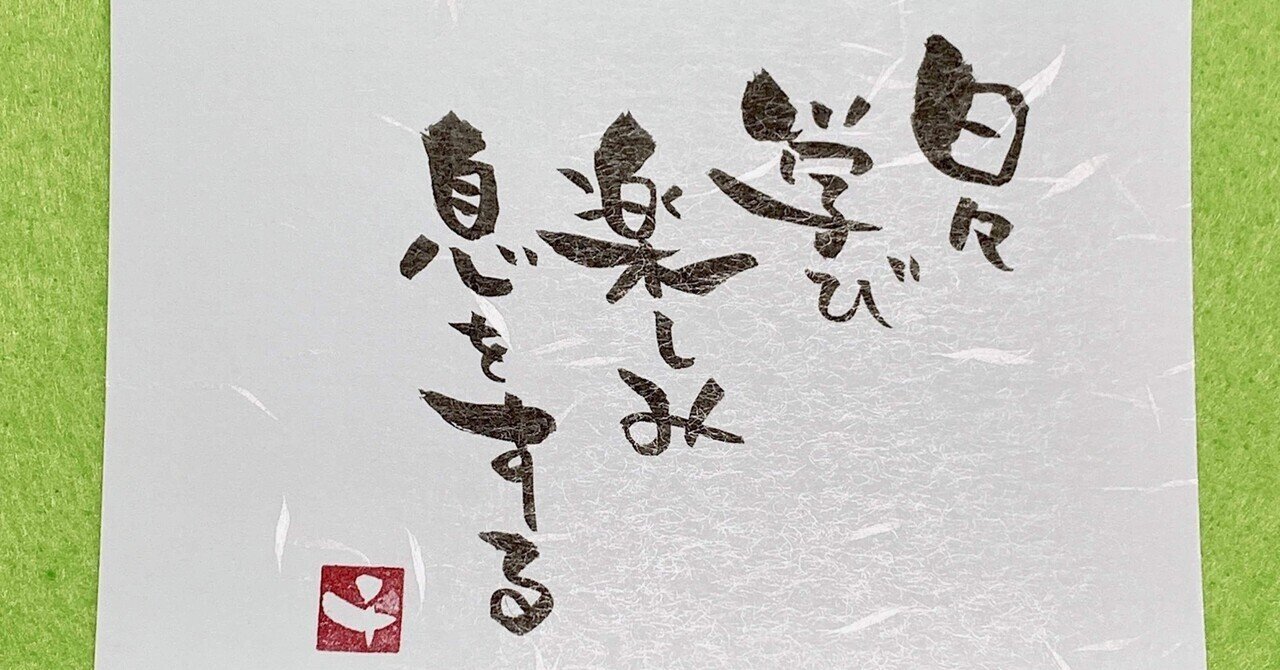 日々
学び
楽しみ
息をする